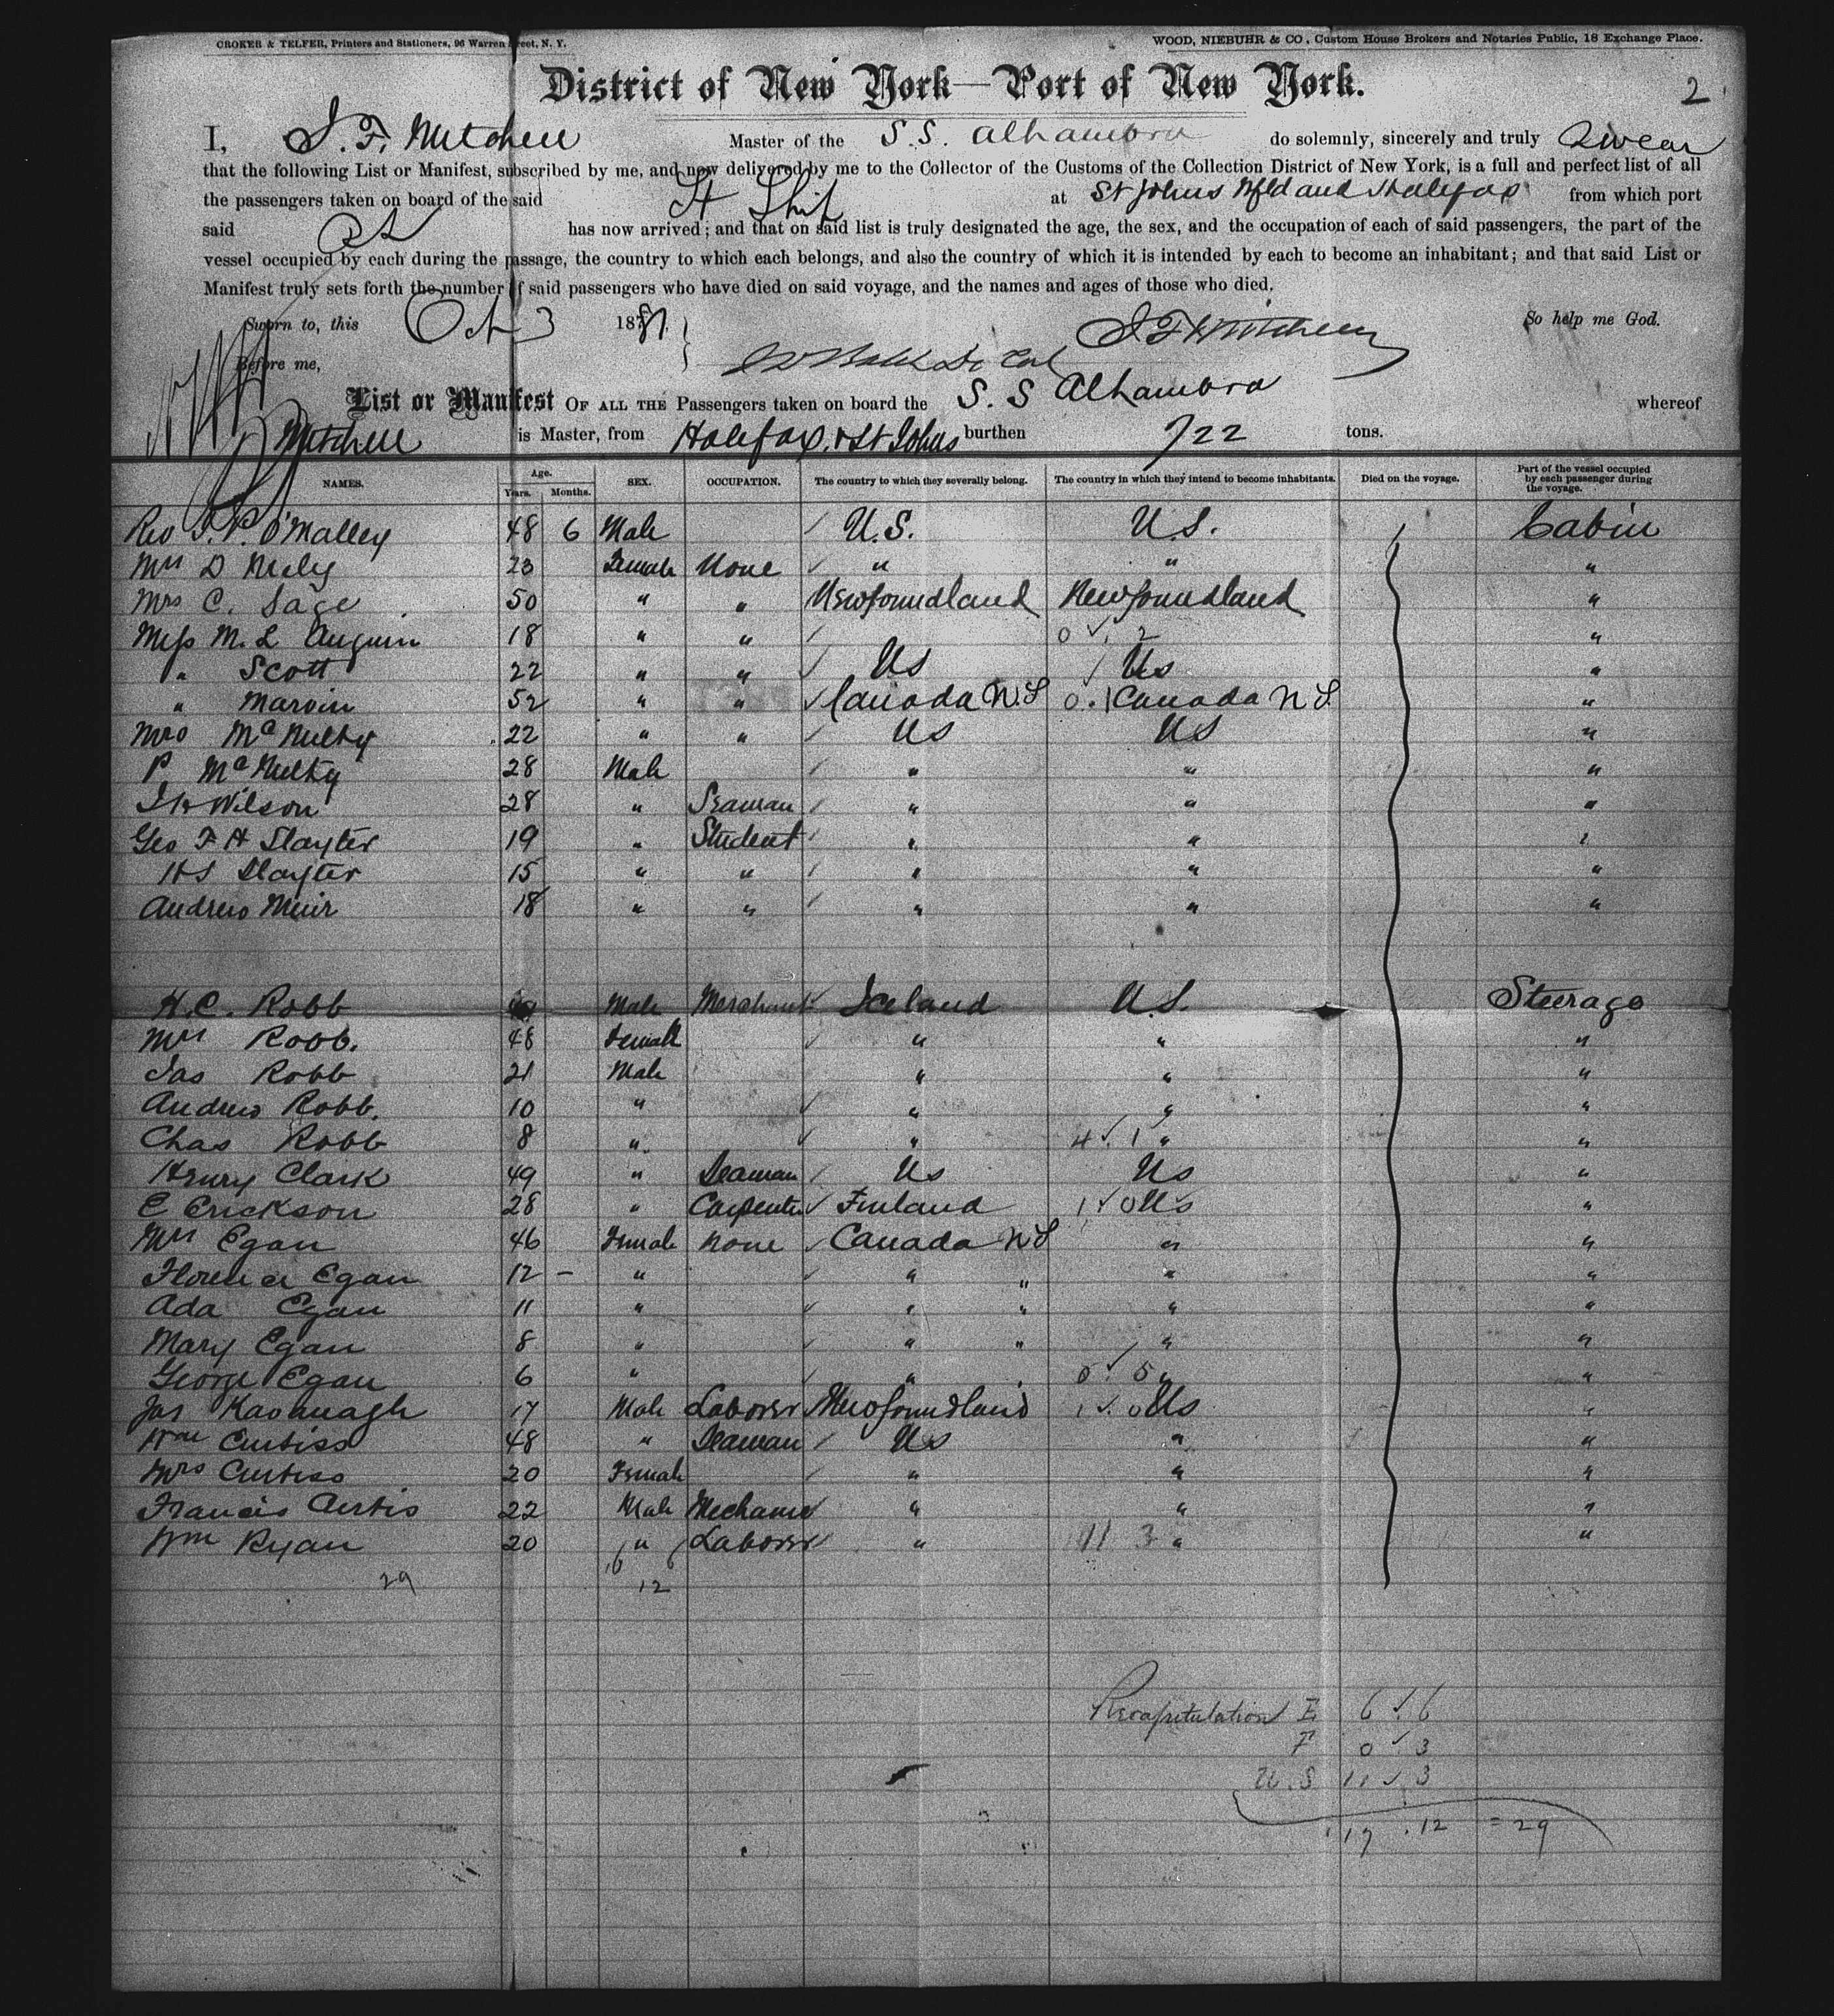 CROKER & TELFER, Printers and Stationers, 96 Warren Street, N. Y.
WOOD, NIEBUHR & CO, Custom House Brokers and Notaries Public, 18 Exchange Place.
District of New York—Port of New York.
2
I, S. F. Mitchell Master of the S.S. Alhambra do solemnly, sincerely and truly Swear
that the following List or Manifest, subscribed by me, and now delivered by me to the Collector of the Customs of the Collection District of New York, is a full and perfect list of all
the passengers taken on board of the said St Ship at St Johns Nfld and Halifax from which port
said has now arrived; and that on said list is truly designated the age, the sex, and the occupation of each of said passengers, the part of the
vessel occupied by each during the passage, the country to which each belongs, and also the country of which it is intended by each to become an inhabitant; and that said List or
Manifest truly sets forth the number of said passengers who have died on said voyage, and the names and ages of those who died.
Sworn to, this Oct 3 1881. So help me God.
S F Mitchell
Before me,
List or Manifest OF ALL THE Passengers taken on board the S. S Alhambra whereof
Mitchell is Master, from Halifax & St Johns burthen 722 tons.
NAMES. Age. Years. Months. SEX. OCCUPATION. The country to which they severally belong. The country in which they intend to become inhabitants. Died on the voyage. Part of the vessel occupied by each passenger during the voyage.
Rev T. P. O'Malley 48 6 Male U.S. U.S. / Cabin
Mrs D Mely 23 Female None " " "
Mrs C. Sage 50 " " Newfoundland Newfoundland "
Miss M. L Anguin 18 " " 0 ✓. 2 "
" Scott 22 " " Us Us "
" Marvin 52 " " Canada N.S 0 . 1 Canada N S. "
Mrs McNulty 22 " " Us US "
P. McNulty 28 Male " " "
J H Wilson 28 " Seaman " " "
Geo F H Slayter 19 " Student " " "
H S Slayter 15 " " " " "
Andrew Muir 18 " " " " "
H. C. Robb Male Merchant Iceland U.S. Steerage
Mrs Robb. 48 Female " " "
Jas Robb 21 Male " " "
Andrew Robb. 10 " " " "
Chas Robb 8 " " 4 ✓. 1 " "
Henry Clark 49 " Seaman Us Us "
E Erickson 28 " Carpenter Finland 1 ✓ 0 Us "
Mrs Egan 46 Female None Canada N S " "
Florence Egan 12 – " " " " "
Ada Egan 11 " " " " "
Mary Egan 8 " " " " "
George Egan 6 " " 0 ✓. 5 " "
Jas Kavanagh 17 Male Laborer Newfoundland 1 ✓. 0 Us "
Wm Curtiss 48 " Seaman Us " "
Mrs Curtiss 20 Female " " "
Francis Curtis 22 Male Mechanic " " "
Wm Ryan 20 " Laborer " 11 3 " "
29 12
Recapitulation E 6 ✓. 6
F 0 ✓ 3
U.S 11 ✓ 3
17 . 12 = 29